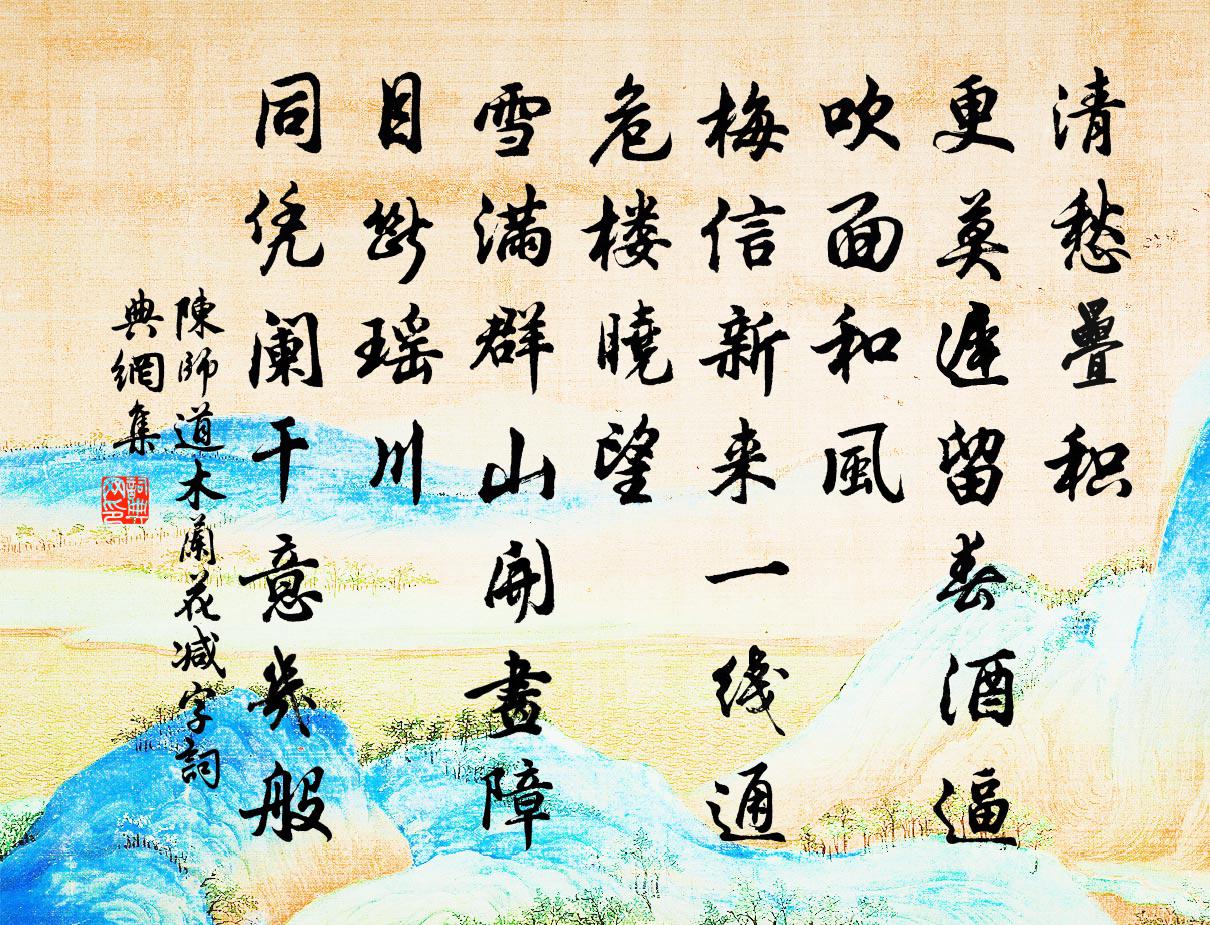 清愁疊积
更莫遲留春酒逼
吹面和風
梅信新来一线通
危楼曉望
雪满群山開畫障
目断瑶川
同凭阑干意幾般
陳師道木蘭花减字詞
典網集
詞典